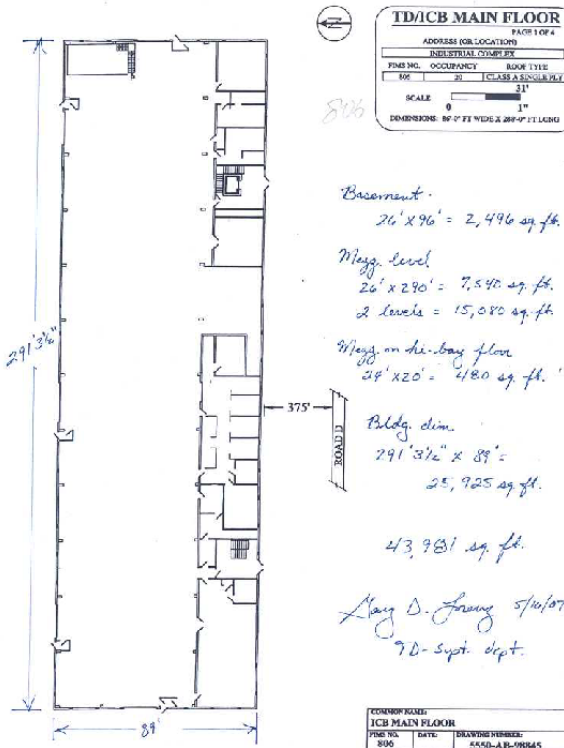 TD/ICB MAIN FLOOR
PAGE 1 OF 4
ADDRESS (OR LOCATION)
INDUSTRIAL COMPLEX
FIMS NO. OCCUPANCY ROOF TYPE
806 20 CLASS A SINGLE PLY
31'
SCALE
0 1"
DIMENSIONS: 86'-0" FT WIDE X 288'-0" FT LONG
806
Basement.
26' X 96' = 2,496 sq. ft.
Mezz. level
26' x 290' = 7,540 sq. ft.
2 levels = 15,080 sq. ft.
Mezz. on hi-bay floor
24' x 20' = 480 sq. ft.
291' 3½"
375'
ROAD D
Bldg. dim.
291' 3½" x 89' =
25,925 sq. ft.
43,981 sq. ft.
5/16/07
TD- Supt. dept.
89'
COMMON NAME:
ICB MAIN FLOOR
FIMS NO. DATE: DRAWING NUMBER:
806